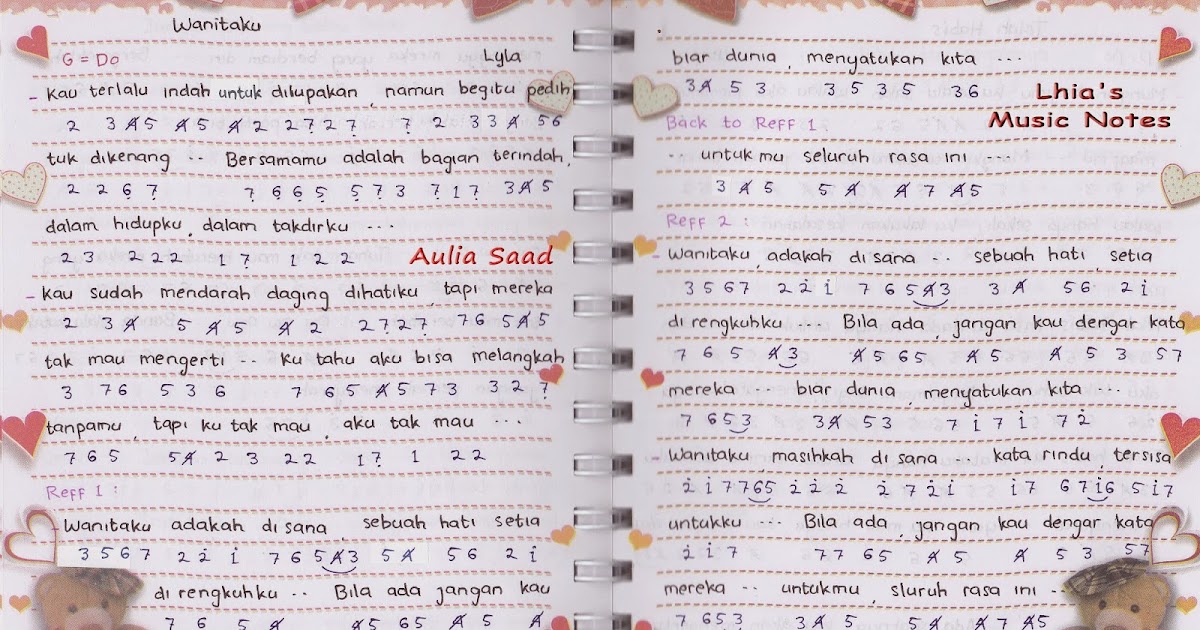 Wanitaku
G = Do Lyla
- Kau terlalu indah untuk dilupakan, namun begitu pedih
2 3 4̸ 5 4̸ 5 4̸ 2 2 7̣ 2 7̣ 7̣ 2 3 3 4̸ 5 6
tuk dikenang .. Bersamamu adalah bagian terindah,
2 2 6̣ 7̣ 7̣ 6̣ 6̣ 5̣ 5̣ 7̣ 3 7̣ 1 7̣ 3 4̸ 5
dalam hidupku, dalam takdirku ...
2 3 2 2 2 1 7̣ 1 2 2
Aulia Saad
- Kau sudah mendarah daging dihatiku, tapi mereka
2 3 4̸ 5 4̸ 5 4̸ 2 2 7̣ 2 7̣ 7 6 5 4̸ 5
tak mau mengerti .. Ku tahu aku bisa melangkah
3 7 6 5 3 6 7 6 5 4̸ 5 7 3 3 2 7̣
tanpamu, tapi ku tak mau, aku tak mau ...
7 6 5 5 4̸ 2 3 2 2 1 7̣ 1 2 2
Reff 1 :
- Wanitaku adakah di sana, sebuah hati setia
3 5 6 7 2 2̇ 1̇ 7 6 5 4̸ 3 5 4̸ 5 6 2 1̇
di rengkuhku .. Bila ada jangan kau
7 6 5 4̸ 4̸ 5 6 5 4̸ 5 4̸
biar dunia, menyatukan kita ...
3 4̸ 5 3 3 5 3 5 3 6
Lhia's
Music Notes
Back to Reff 1 :
.. untukmu seluruh rasa ini ...
3 4̸ 5 5 4̸ 4̸ 7 4̸ 5
Reff 2 :
- Wanitaku, adakah di sana .. sebuah hati, setia
3 5 6 7 2 2̇ 1̇ 7 6 5 4̸ 3 3 4̸ 5 6 2 1̇
di rengkuhku ... Bila ada, jangan kau dengar kata
7 6 5 4̸ 3 4̸ 5 6 5 4̸ 5 4̸ 5 3 5 7
mereka .. biar dunia, menyatukan kita ...
7 6 5 3 3 4̸ 5 3 7 1̇ 7 1̇ 7 2̇
- Wanitaku, masihkah di sana .. kata rindu, tersisa
2̇ 1̇ 7 7 6 5 2̇ 2̇ 2̇ 2̇ 7 2̇ 1̇ 1̇ 7 6 7 1̇ 6 5 1̇ 7
untukku ... Bila ada, jangan kau dengar kata
2̇ 1̇ 7 7 7 6 5 4̸ 5 4̸ 5 3 5 7
mereka .. untukmu, sluruh rasa ini ..
7 6 5 3 3 4̸ 5 5 4̸ 4̸ 7 4̸ 5